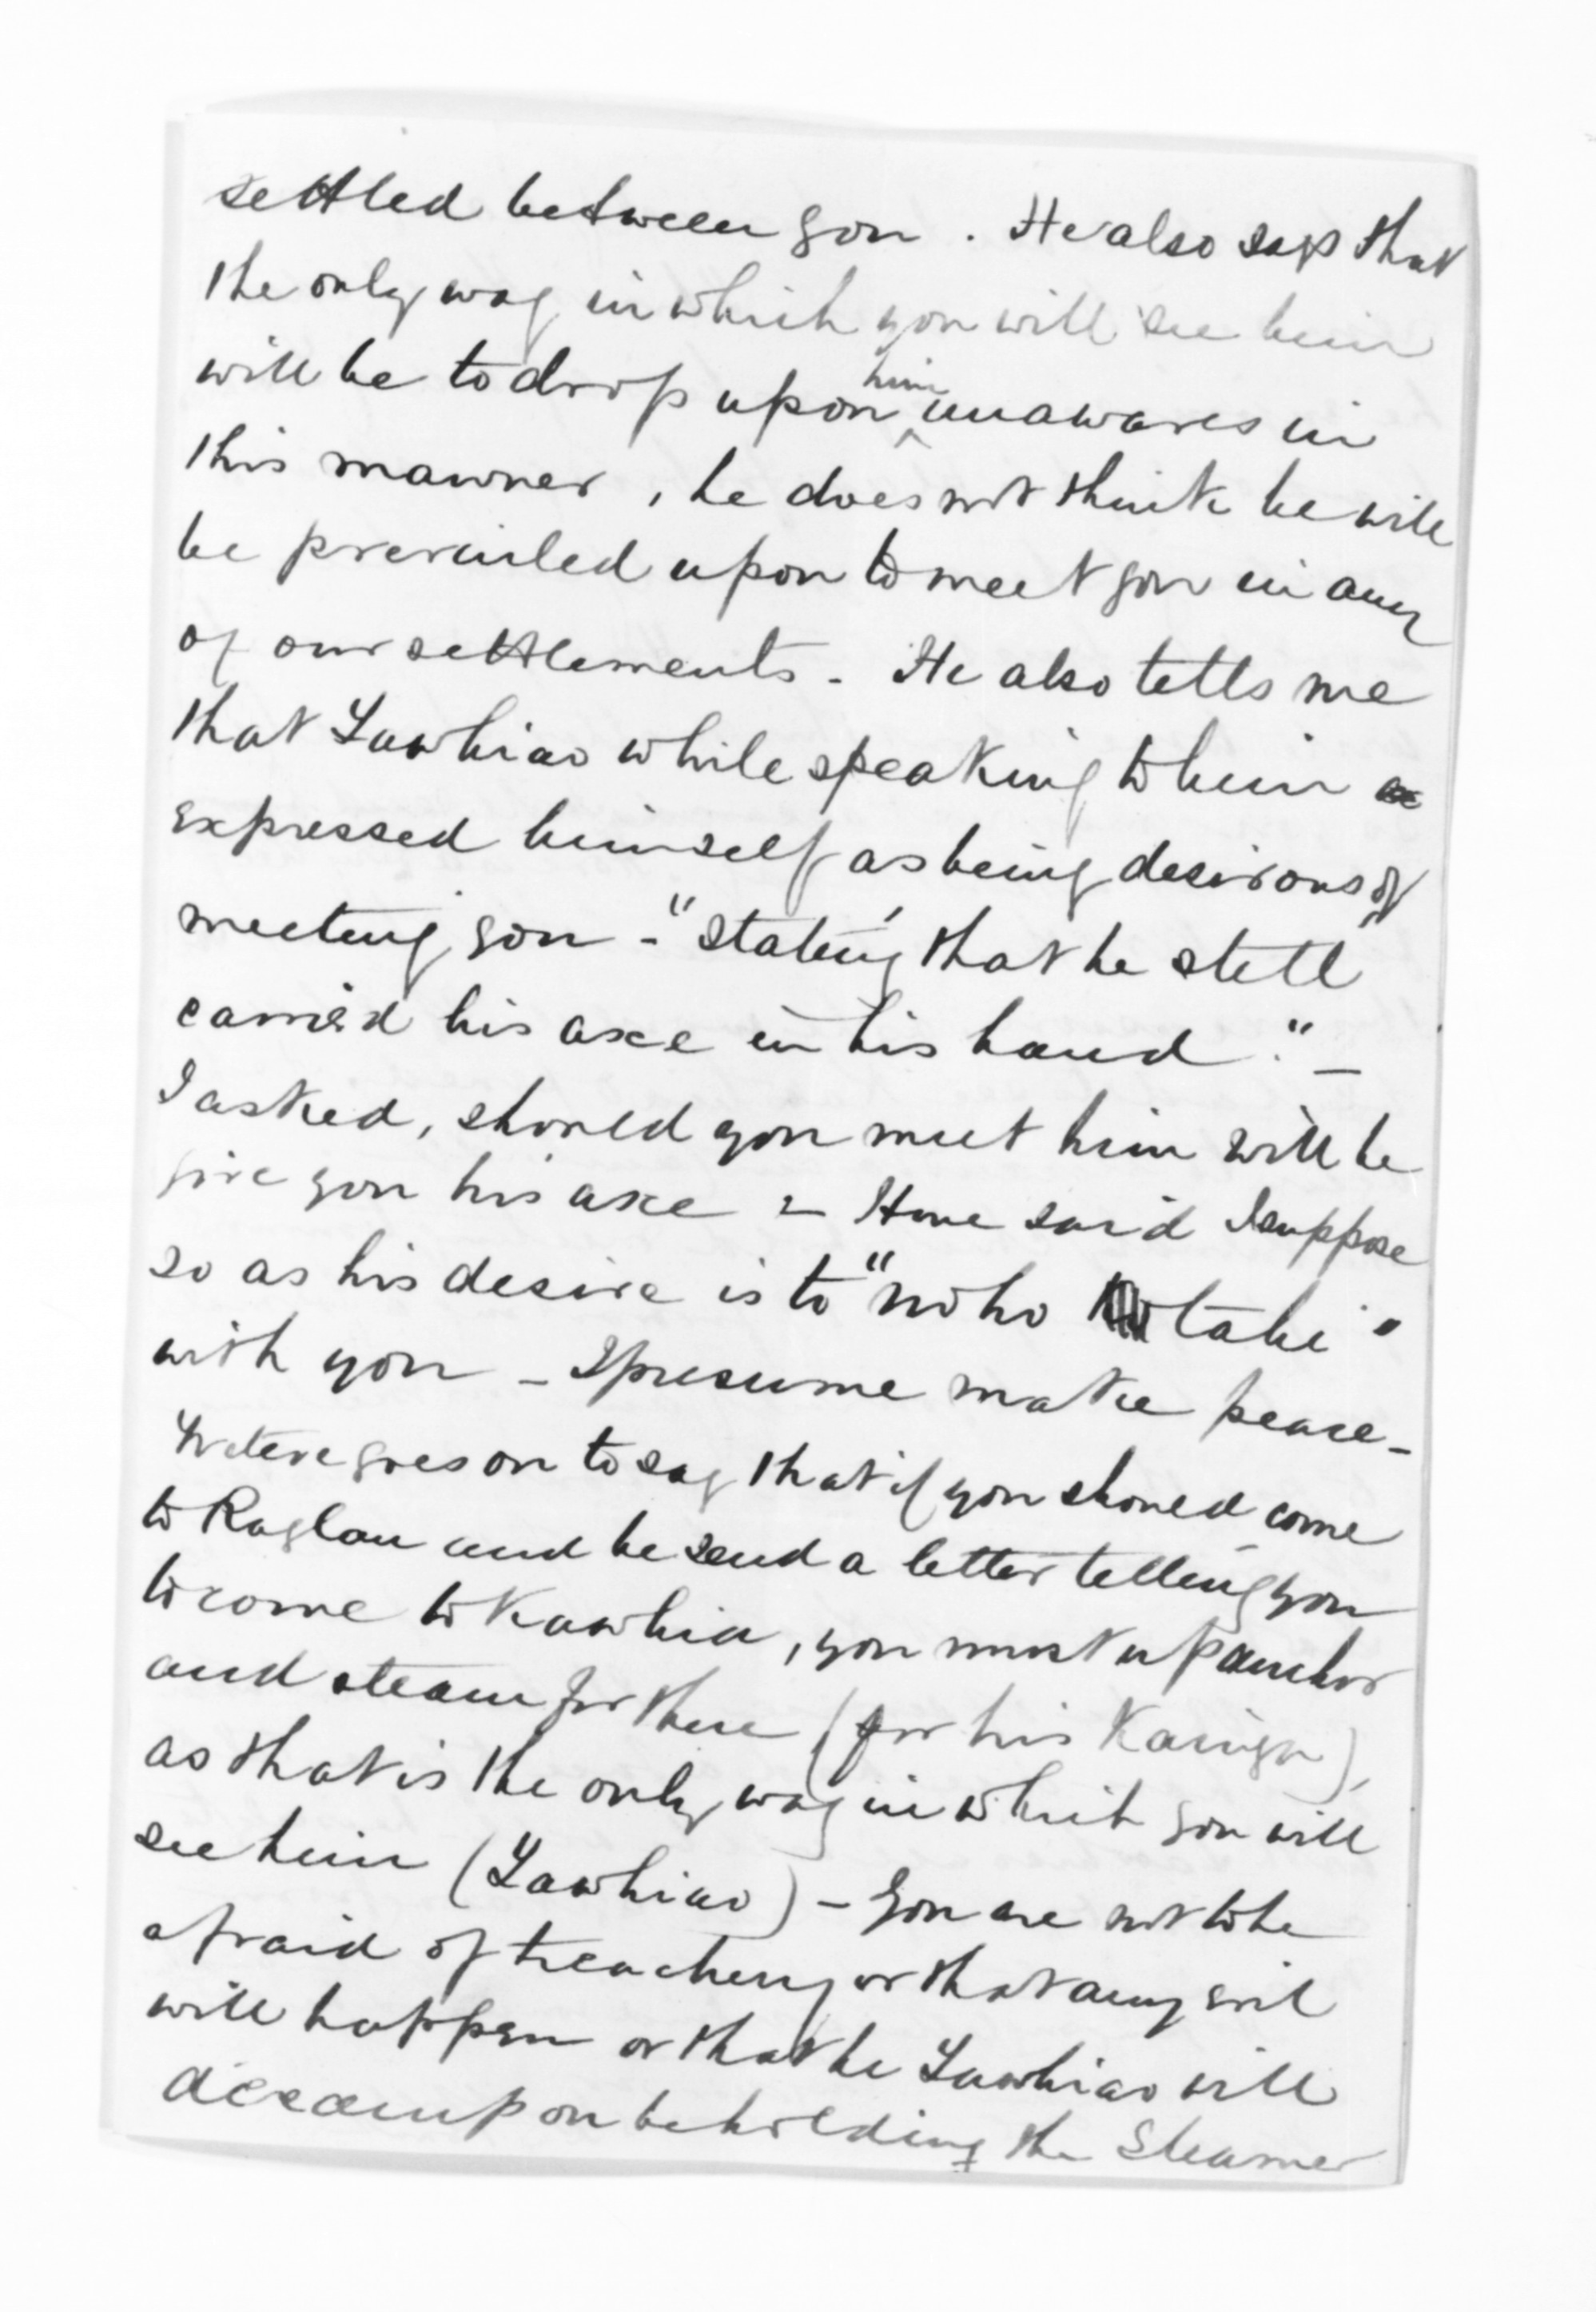 settled between you. He also says that
the only way in which you will see him
will be to drop upon him unawares in
this manner, he does not think he will
be prevailed upon to meet you in any
of our settlements - He also tells me
that Tawhiao while speaking to him
expressed himself as being desirous of
meeting you - "stating that he still
carried his axe in his hand." -
I asked, should you meet him will he
give you his axe - Hone said I suppose
so as his desire is to "noho tahi"
with you - I presume make peace -
Wetere goes on to say that if you should come
to Raglan and he send a letter telling you
to come to Kawhia, you must up anchor
and steam for there (for his Kainga),
as that is the only way in which you will
see him (Tawhiao) - You are not to be
afraid of treachery or that any evil
will happen or that he Tawhiao will
decamp on beholding the Steamer